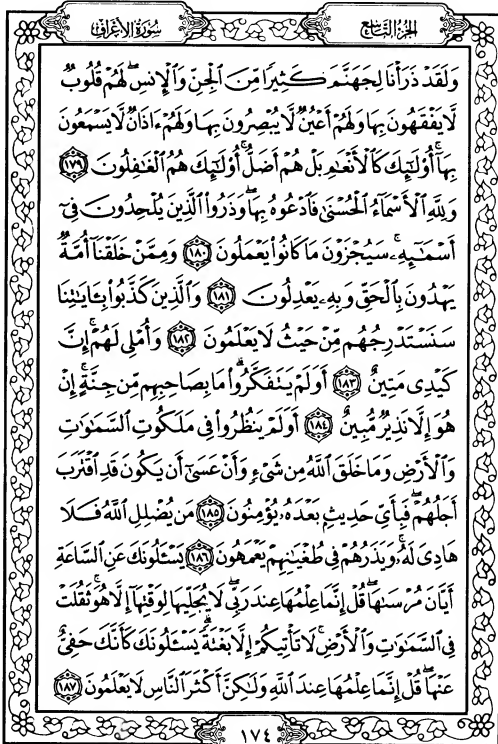 سُورَةُ الأَعْرَافِ الجُزْءُ التَّاسِعُ
وَلَقَدْ ذَرَأْنَا لِجَهَنَّمَ كَثِيرًا مِّنَ الْجِنِّ وَالْإِنسِ ۖ لَهُمْ قُلُوبٌ
لَّا يَفْقَهُونَ بِهَا وَلَهُمْ أَعْيُنٌ لَّا يُبْصِرُونَ بِهَا وَلَهُمْ ءَاذَانٌ لَّا يَسْمَعُونَ
بِهَآ ۚ أُو۟لَـٰٓئِكَ كَالْأَنْعَـٰمِ بَلْ هُمْ أَضَلُّ ۚ أُو۟لَـٰٓئِكَ هُمُ الْغَـٰفِلُونَ ١٧٩
وَلِلَّهِ الْأَسْمَآءُ الْحُسْنَىٰ فَادْعُوهُ بِهَا ۖ وَذَرُوا۟ الَّذِينَ يُلْحِدُونَ فِىٓ
أَسْمَـٰٓئِهِۦ ۚ سَيُجْزَوْنَ مَا كَانُوا۟ يَعْمَلُونَ ١٨٠ وَمِمَّنْ خَلَقْنَآ أُمَّةٌ
يَهْدُونَ بِالْحَقِّ وَبِهِۦ يَعْدِلُونَ ١٨١ وَالَّذِينَ كَذَّبُوا۟ بِـَٔايَـٰتِنَا
سَنَسْتَدْرِجُهُم مِّنْ حَيْثُ لَا يَعْلَمُونَ ١٨٢ وَأُمْلِى لَهُمْ ۚ إِنَّ
كَيْدِى مَتِينٌ ١٨٣ أَوَلَمْ يَتَفَكَّرُوا۟ ۗ مَا بِصَاحِبِهِم مِّن جِنَّةٍ ۚ إِنْ
هُوَ إِلَّا نَذِيرٌ مُّبِينٌ ١٨٤ أَوَلَمْ يَنظُرُوا۟ فِى مَلَكُوتِ السَّمَـٰوَٰتِ
وَالْأَرْضِ وَمَا خَلَقَ اللَّهُ مِن شَىْءٍ وَأَنْ عَسَىٰٓ أَن يَكُونَ قَدِ اقْتَرَبَ
أَجَلُهُمْ ۖ فَبِأَىِّ حَدِيثٍۭ بَعْدَهُۥ يُؤْمِنُونَ ١٨٥ مَن يُضْلِلِ اللَّهُ فَلَا
هَادِىَ لَهُۥ ۚ وَيَذَرُهُمْ فِى طُغْيَـٰنِهِمْ يَعْمَهُونَ ١٨٦ يَسْـَٔلُونَكَ عَنِ السَّاعَةِ
أَيَّانَ مُرْسَىٰهَا ۖ قُلْ إِنَّمَا عِلْمُهَا عِندَ رَبِّى ۖ لَا يُجَلِّيهَا لِوَقْتِهَآ إِلَّا هُوَ ۚ ثَقُلَتْ
فِى السَّمَـٰوَٰتِ وَالْأَرْضِ ۚ لَا تَأْتِيكُمْ إِلَّا بَغْتَةً ۗ يَسْـَٔلُونَكَ كَأَنَّكَ حَفِىٌّ
عَنْهَا ۖ قُلْ إِنَّمَا عِلْمُهَا عِندَ اللَّهِ وَلَـٰكِنَّ أَكْثَرَ النَّاسِ لَا يَعْلَمُونَ ١٨٧
١٧٤